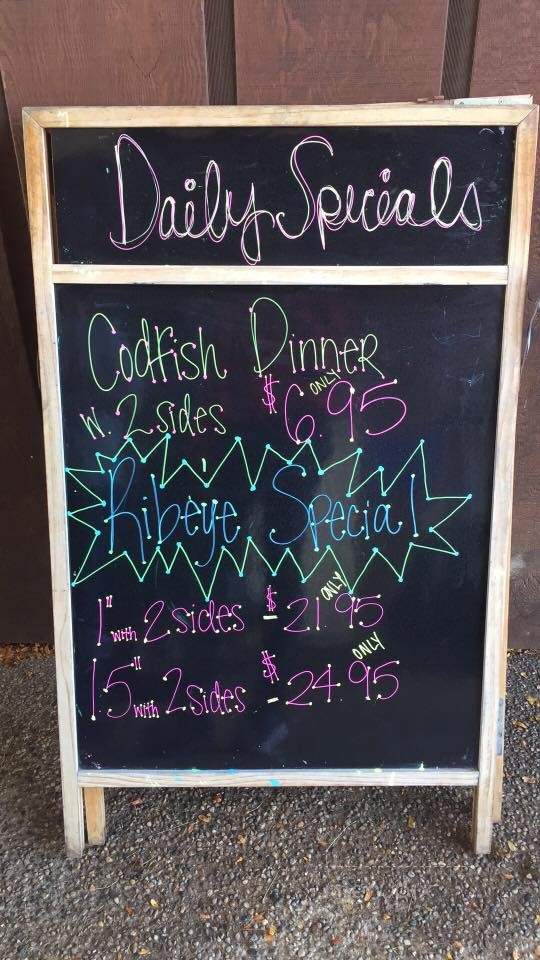 Daily Specials
Codfish Dinner
W. 2 sides $6.95 ONLY
Ribeye Special
1" with 2 sides - $21.95 ONLY
15" with 2 sides - $24.95 ONLY